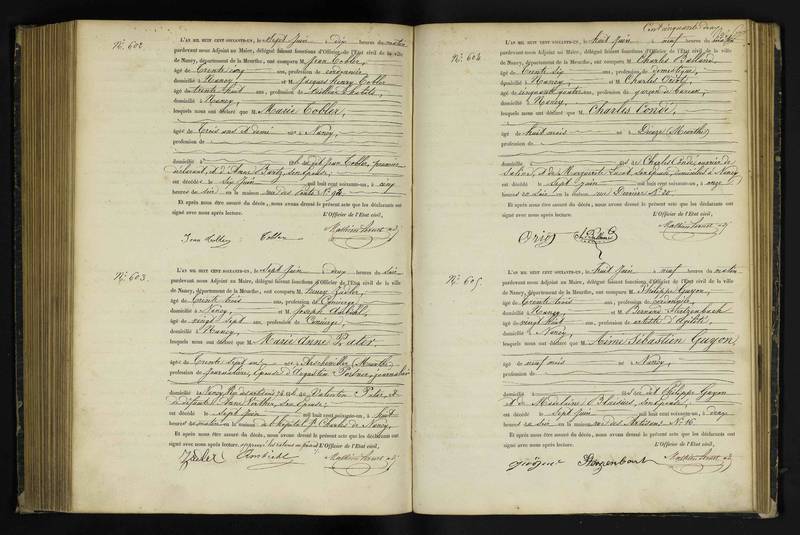 N.° 602
L'AN MIL HUIT CENT SOIXANTE-UN, le Sept Juin à dix heures du matin
pardevant nous Adjoint au Maire, délégué faisant fonctions d'Officier de l'Etat civil de la ville
de Nancy, département de la Meurthe, ont comparu M. Jean Cobler,
âgé de trente cinq ans, profession de
domicilié à Nancy, et M. Jacques Henry Cobler
âgé de trente huit ans, profession de
domicilié à Nancy,
lesquels nous ont déclaré que M. Marie Cobler,
âgé de trois ans et demi né à Nancy,
profession de
domicilié à est dit Jean Cobler, premier
déclarant, et d'Anne son épouse;
est décédée le Six Juin mil huit cent soixante-un, à cinq
heures du soir en la maison rue N.° 92
Et après nous être assuré du décès, nous avons dressé le présent acte que les déclarants ont
signé avec nous après lecture. L'Officier de l'Etat civil,
Jean Cobler Cobler
N.° 603.
L'AN MIL HUIT CENT SOIXANTE-UN, le Sept Juin à deux heures du soir
pardevant nous Adjoint au Maire, délégué faisant fonctions d'Officier de l'Etat civil de la ville
de Nancy, département de la Meurthe, ont comparu M. Henry
âgé de trente trois ans, profession de Concierge,
domicilié à Nancy, et M. Joseph
âgé de vingt sept ans, profession de Concierge,
domicilié à Nancy,
lesquels nous ont déclaré que M. Marie Anne Pater,
âgée de trente sept ans, née à (Meurthe)
profession de journalière, épouse d'Augustin journalier
domicilié à Nancy, Valentin Pater, et
de défunte Anne son épouse;
est décédé le Sept Juin mil huit cent soixante-un, à huit
heures du matin en la maison de l'hôpital St Charles de Nancy,
Et après nous être assuré du décès, nous avons dressé le présent acte que les déclarants ont
signé avec nous après lecture. L'Officier de l'Etat civil,
Cent cinquante deux
N.° 604
L'AN MIL HUIT CENT SOIXANTE-UN, le huit Juin à neuf heures du matin
pardevant nous Adjoint au Maire, délégué faisant fonctions d'Officier de l'Etat civil de la ville
de Nancy, département de la Meurthe, ont comparu M. Charles Balland
âgé de trente six ans, profession de domestique,
domicilié à Nancy, et M. Charles Oriot,
âgé de cinquante quatre ans, profession de garçon de bureau,
domicilié à Nancy,
lesquels nous ont déclaré que M. Charles Condé,
âgé de huit mois né à Dieuze (Meurthe)
profession de
domicilié à est né Charles Condé, ouvrier de
saline, et de Marguerite son épouse, domiciliés à Nancy
est décédé le Sept Juin mil huit cent soixante-un, à onze
heures du soir en la maison rue N.° 20
Et après nous être assuré du décès, nous avons dressé le présent acte que les déclarants ont
signé avec nous après lecture. L'Officier de l'Etat civil,
Oriot Ch. Balland
N.° 605.
L'AN MIL HUIT CENT SOIXANTE-UN, le huit Juin à neuf heures du matin
pardevant nous Adjoint au Maire, délégué faisant fonctions d'Officier de l'Etat civil de la ville
de Nancy, département de la Meurthe, ont comparu M. Philippe Guyon,
âgé de trente trois ans, profession de cordonnier,
domicilié à Nancy, et M. Bernard
âgé de vingt huit ans, profession de artiste d'agilité,
domicilié à Nancy,
lesquels nous ont déclaré que M. Aimé Sébastien Guyon
âgé de neuf mois né à Nancy,
profession de
domicilié à est né dit Philippe Guyon
et de Madelaine son épouse;
est décédé le Sept Juin mil huit cent soixante-un, à deux
heures du soir en la maison rue des Artisans N.° 16
Et après nous être assuré du décès, nous avons dressé le présent acte que les déclarants ont
signé avec nous après lecture. L'Officier de l'Etat civil,